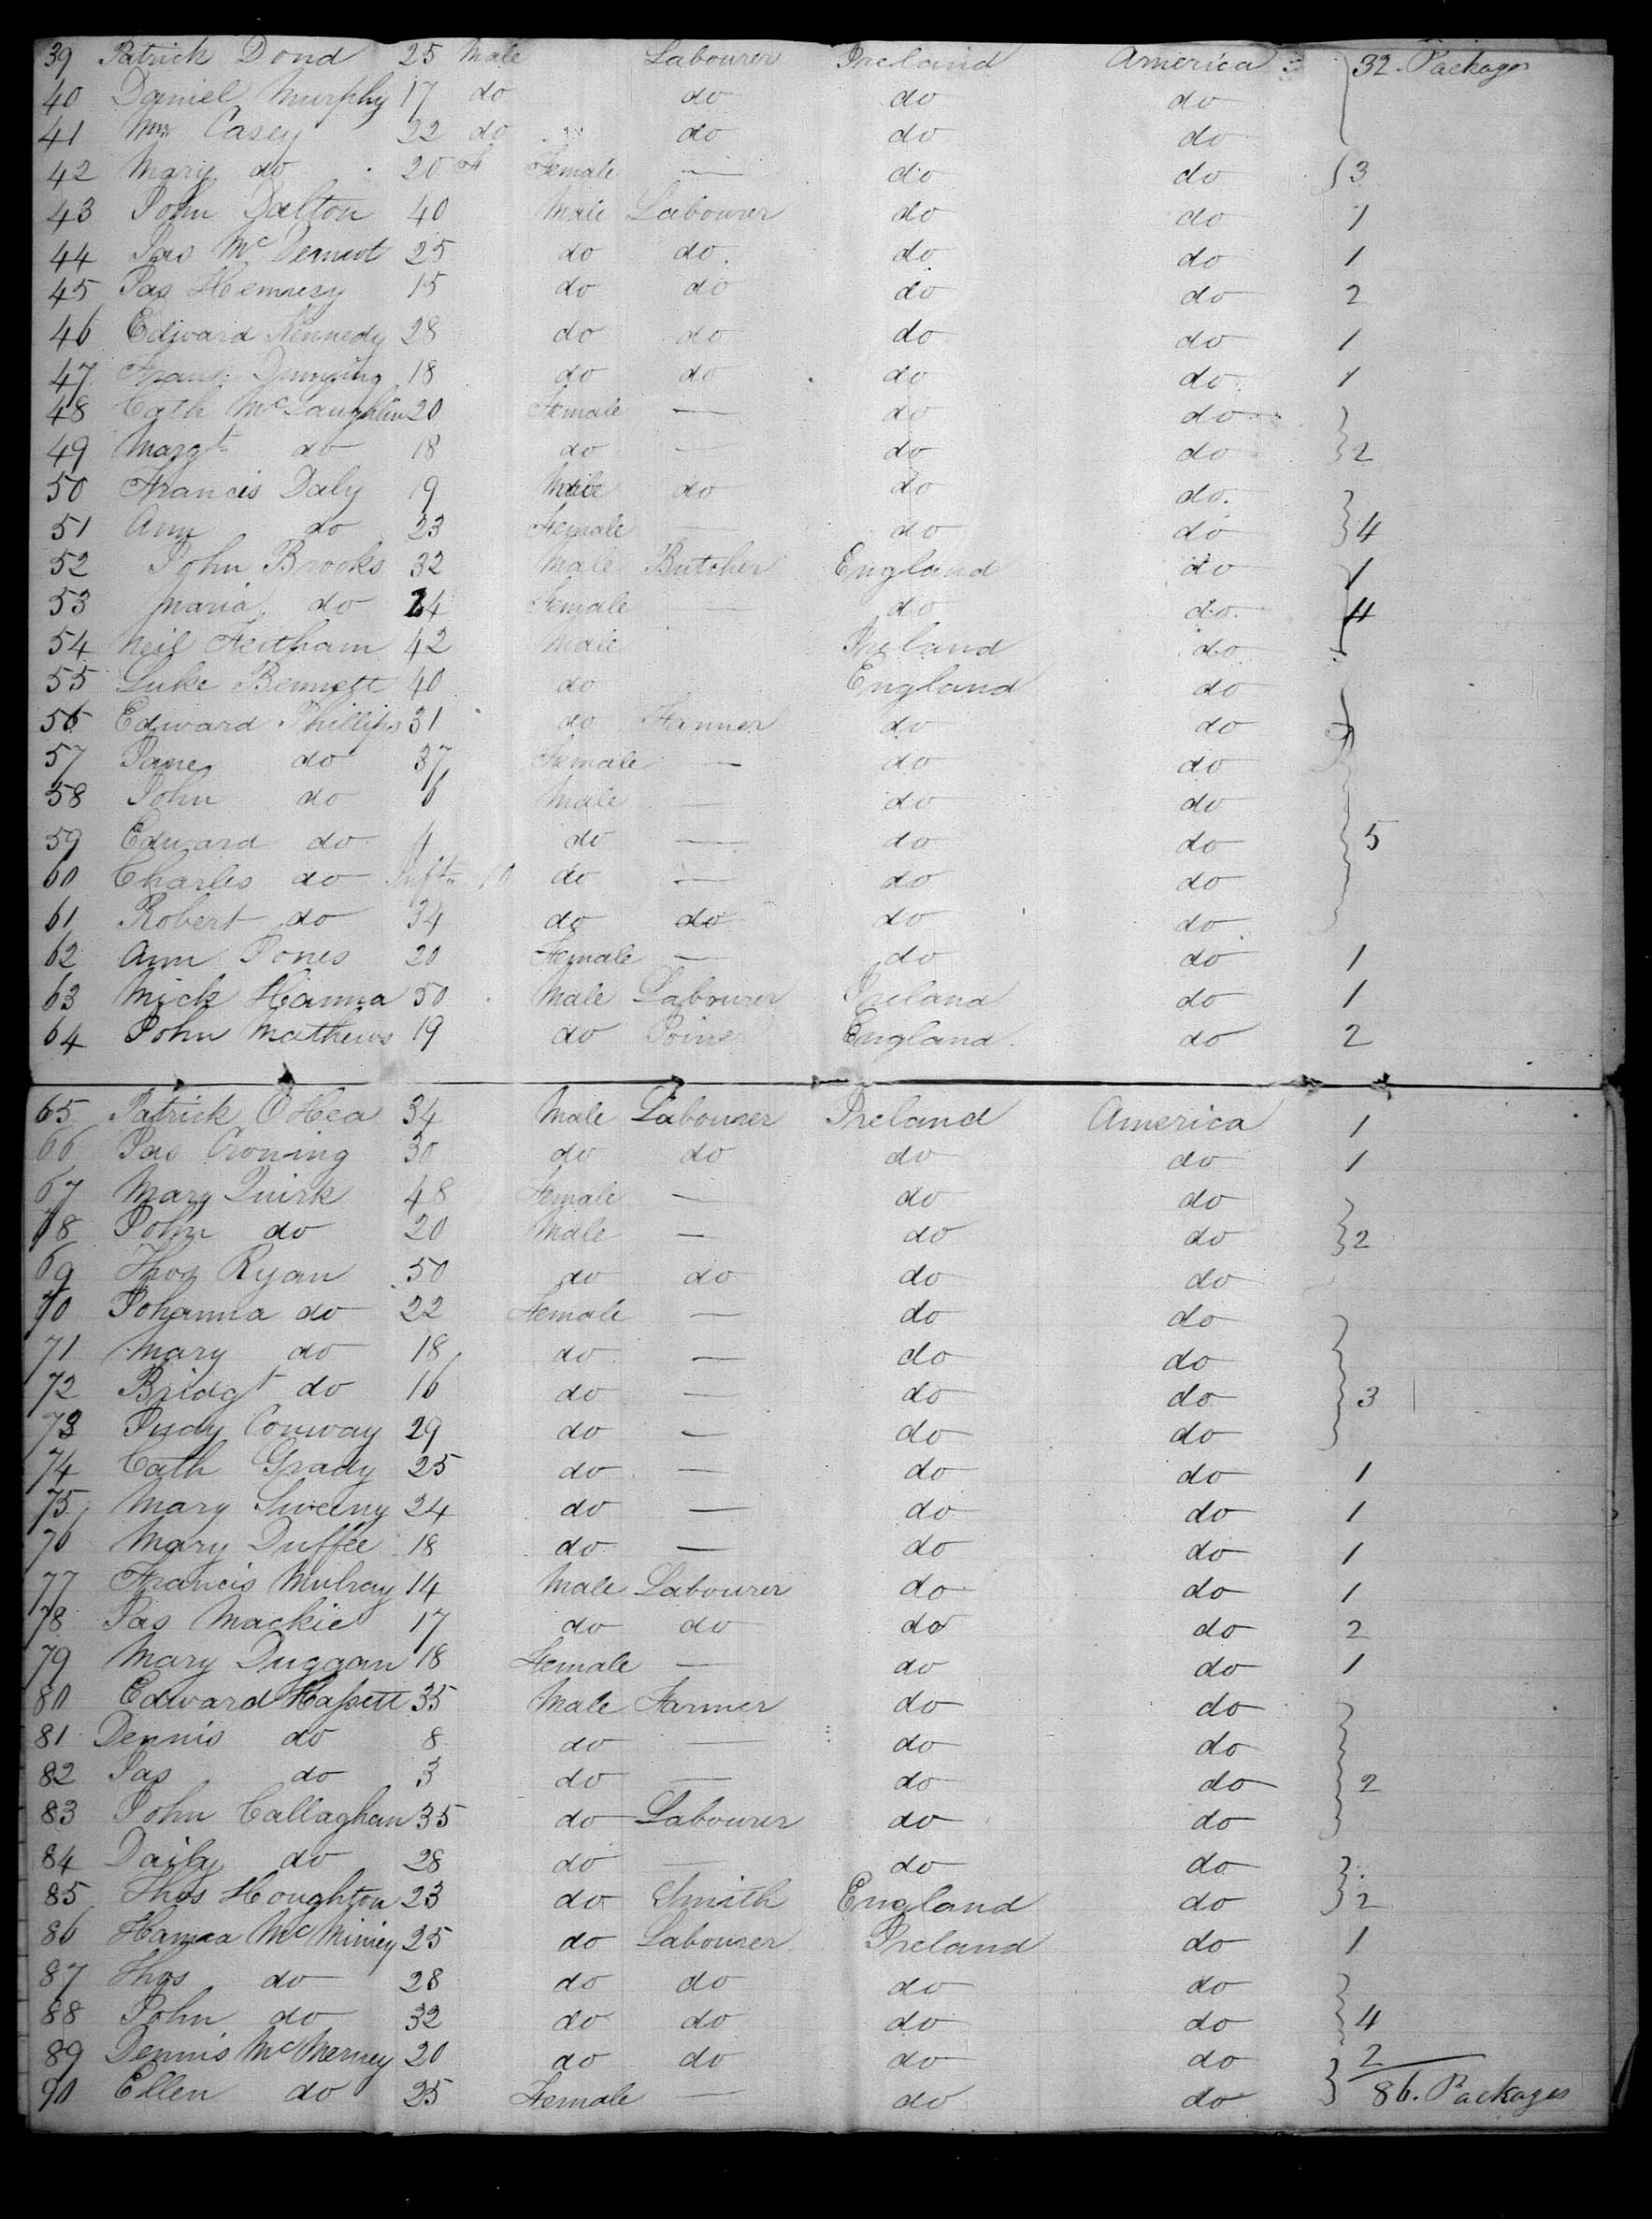 39 Patrick Dond 25 Male Labourer Ireland America 32. Packages
40 Daniel Murphy 17 do do do do
41 Wm Casey 22 do do do do
42 Mary do 20 Female — do do 3
43 John Dalton 40 Male Labourer do do 1
44 Jas McDermot 25 do do do do 1
45 Jas Hennesy 15 do do do do 2
46 Edward Kennedy 28 do do do do 1
47 18 do do do do 1
48 Cath McLaughlin 20 Female — do do
49 Margt do 18 do — do do 2
50 Francis Daly 19 Male do do do
51 Ann do 23 Female — do do 4
52 John Brooks 32 Male Butcher England do 1
53 Maria do 24 Female — do do 4
54 Neil Feitham 42 Male Ireland do
55 Luke Bennett 40 do England do
56 Edward Phillips 31 do Farmer do do
57 Jane do 37 Female — do do
58 John do 6 Male — do do
59 Edward do 4 do — do do 5
60 Charles do do — do do
61 Robert do 34 do do do do
62 Ann Jones 20 Female — do do 1
63 Mick Hanna 50 Male Labourer Ireland do 1
64 John Mathews 19 do England do 2
65 Patrick O'Hea 34 Male Labourer Ireland America 1
66 Jas Croning 30 do do do do 1
67 Mary Quirk 48 Female — do do
68 John do 20 Male — do do 2
69 Thos Ryan 50 do do do do
70 Johanna do 22 Female — do do
71 Mary do 18 do — do do
72 Bridgt do 16 do — do do 3
73 Judy Conway 29 do — do do
74 Cath Grady 25 do — do do 1
75 Mary Sweeny 24 do — do do 1
76 Mary Duffee 18 do — do do 1
77 Francis Mulray 14 Male Labourer do do 1
78 Jas Mackie 17 do do do do 2
79 Mary Duggan 18 Female — do do 1
80 Edward Hassett 35 Male Farmer do do
81 Dennis do 8 do — do do
82 Jas do 3 do — do do 2
83 John Callaghan 35 do Labourer do do
84 Daily do 28 do — do do
85 Thos Houghton 23 do Smith England do 2
86 Hanna 25 do Labourer Ireland do 1
87 Thos do 28 do do do do
88 John do 32 do do do do 4
89 Dennis McMerney 20 do do do do 2
90 Ellen do 25 Female — do do 86. Packages